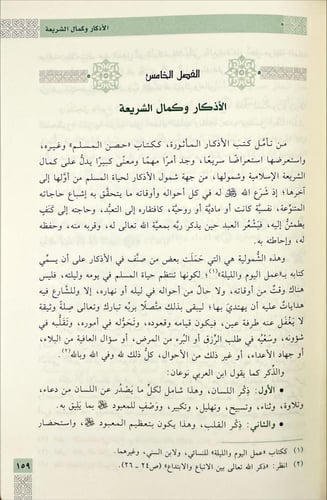 الأذكار وكمال الشريعة
الفصل الخامس
الأذكار وكمال الشريعة
مَن تأمَّل كتب الأذكار المأثورة، ككتاب «حصن المسلم» وغيره،
واستعرضها استعراضًا سريعًا، وجد أمرًا مهمًّا ومعنًى كبيرًا يدلُّ على كمال
الشريعة الإسلامية وشمولها، من جهة شمول الأذكار لحياة المسلم من أوَّلها إلى
آخرها؛ إذ شَرَع الله ﷻ له في كل أحواله وأوقاته ما يتحقَّق به إشباع حاجاته
المتنوِّعة، نفسيَّة كانت أو ماديَّة أو روحيَّة، كافتقاره إلى التعبُّد، وحاجته إلى كَنَفٍ
يطمئنُّ إليه، فيَشْعُر العبد حين يذكر ربَّه بمعيَّة الله تعالى له، وقربه منه، وحفظه
له، وإحاطته به.
وهذه الشُّمولية هي التي حَمَلَت بعض من صنَّف في الأذكار على أن يسمِّي
كتابه بـ«عمل اليوم والليلة»(١)؛ لكونها تنتظم حياة المسلم في يومه وليلته، فليس
هناك وقتٌ من أوقاته، ولا حالٌ من أحواله في ليله أو نهاره، إلا وللشارع فيه
هداياتٌ عليه أن يهتديَ بها؛ ليبقى بذلك متَّصلًا بربِّه تبارك وتعالى صِلةً وثيقة
لا يَغْفُل عنه طرفة عين، فيكون قيامه وقعوده، وتحوُّله في أموره، وتقلُّبه في
شؤونه، وسَعْيُه في طلب الرِّزق أو البُرء من المرض، أو سؤال العافية من البلاء،
أو جهاد الأعداء، أو غير ذلك من الأحوال، كلُّ ذلك لله وفي الله وبالله(٢).
والذِّكر كما يقول ابن العربي نوعان:
• الأول: ذِكْر اللسان، وهذا شامل لكلِّ ما يَصْدُر عن اللسان من دعاء،
وتلاوة، وثناء، وتسبيح، وتهليل، وتكبير، ووَصْفٍ للمعبود ﷻ بما يليق به.
• والثاني: ذِكْر القلب، وهذا يكون بتعظيم المعبود ﷻ، واستحضار
(١) ككتاب «عمل اليوم والليلة» للنسائي، ولابن السني، وغيرهما.
(٢) انظر: «ذكر الله تعالى بين الاتباع والابتداع» (ص٢٤-٢٦).
١٥٩